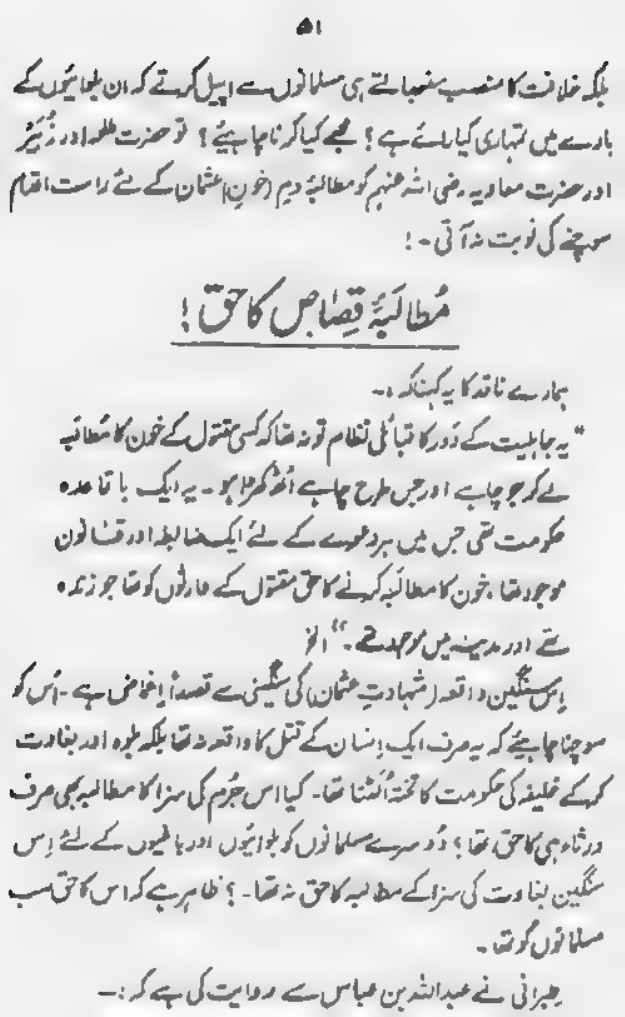 ۵۱
بلکہ خلافت کا منصب سنبھالتے ہی مسلمانوں سے اپیل کرتے کہ ان بلوائیوں کے
بارے میں تمہاری کیا رائے ہے؟ مجھے کیا کرنا چاہیئے؟ تو حضرت طلحہ اور زُبَیْر
اور حضرت معاویہ رضی اللہ عنہم کو مطالبۂ دم (خونِ) عثمان کے لئے راست اقدام
سوچنے کی نوبت نہ آتی۔!
مُطالَبۂ قِصَاص کا حق!
ہمارے ناقد کا یہ کہنا کہ:۔
"یہ جاہلیت کے دَور کا قبائلی نظام تو نہ تھا کہ کسی مقتول کے خون کا مُطالبہ
لے کر جو چاہے اور جس طرح چاہے اُٹھ کھڑا ہو۔ یہ ایک باقاعدہ
حکومت تھی جس میں ہر دعوے کے لئے ایک ضابطہ اور قانون
موجود تھا، خون کا مطالَبہ کرنے کا حق مقتول کے وارثوں کو تھا جو زندہ
تھے اور مدینہ میں موجود تھے۔" الخ
اِس سنگین واقعہ (شہادتِ عثمان) کی سنگینی سے قصداً اِغماض ہے۔ اُس کو
سوچنا چاہیئے کہ یہ صرف ایک اِنسان کے قتل کا واقعہ نہ تھا بلکہ بلوہ اور بغاوت
کر کے خلیفہ کی حکومت کا تختہ اُلٹنا تھا۔ کیا اس جُرم کی سزا کا مطالبہ بھی صرف
ورثاء ہی کا حق تھا؟ دُوسرے مسلمانوں کو بلوائیوں اور باغیوں کے لئے اِس
سنگین بغاوت کی سزا کے مطالبہ کا حق نہ تھا۔؟ ظاہر ہے کہ اس کا حق سب
مسلمانوں کو تھا۔
طبرانی نے عبداللہ بن عباس سے روایت کی ہے کہ:۔